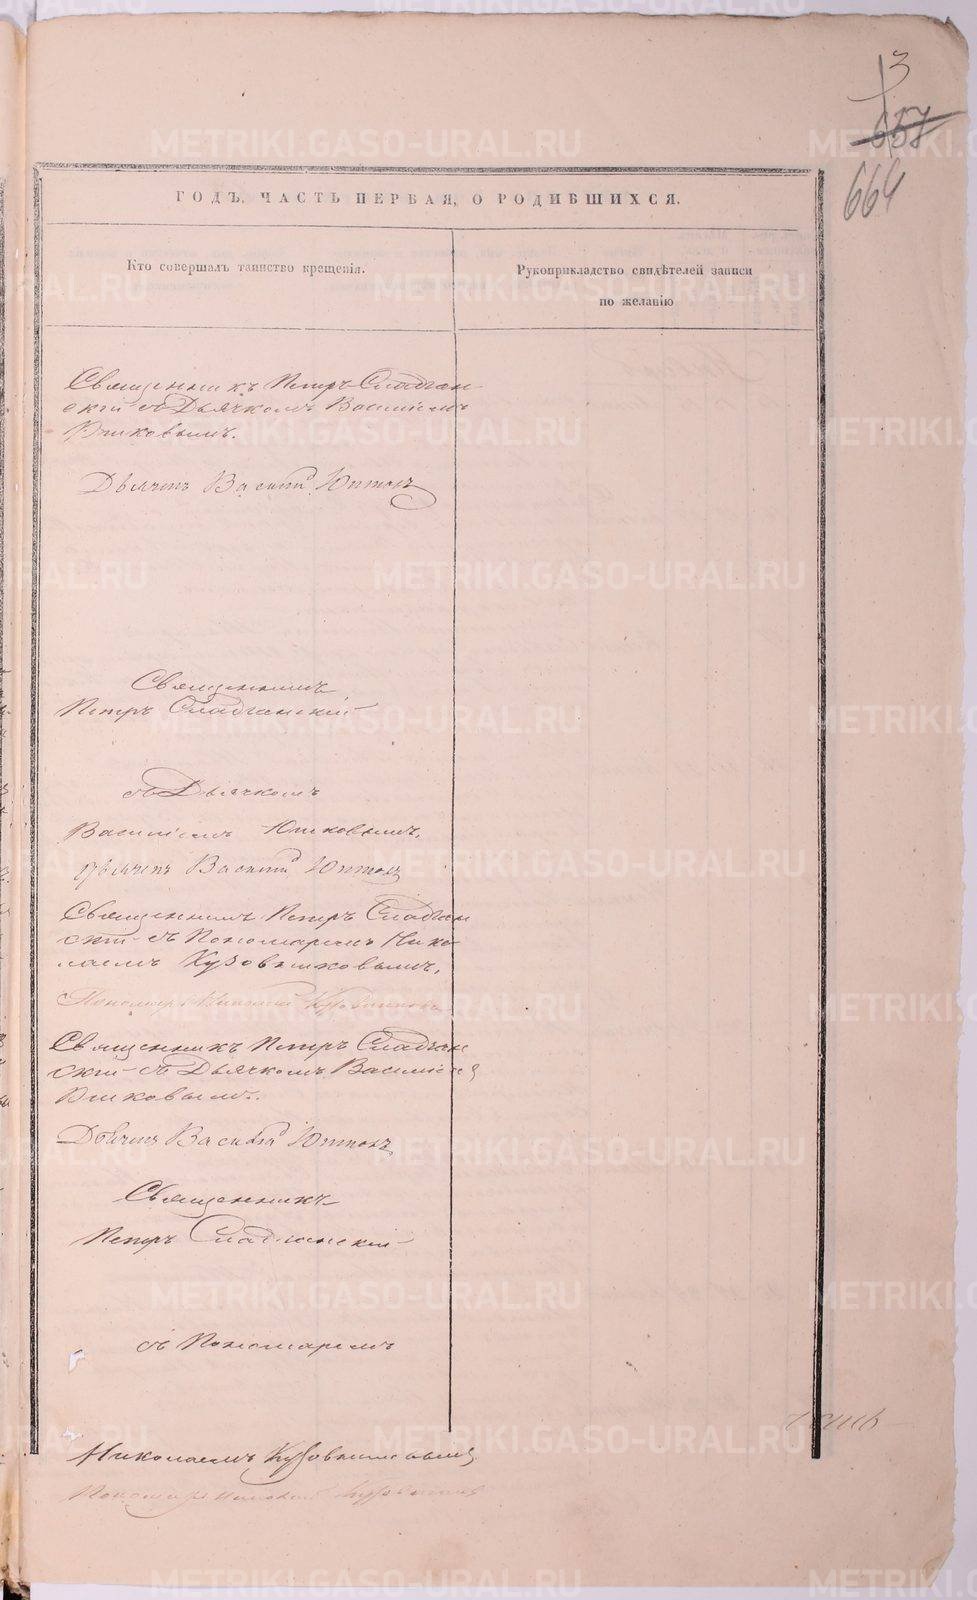 3
657
664
ГОДЪ, ЧАСТЬ ПЕРВАЯ, О РОДИВШИХСЯ.
Кто совершалъ таинство крещенія.
Рукоприкладство свидѣтелей записи
по желанію
Священникъ Петръ Сладчан-
скій съ Дьячкомъ Василіемъ
Юшковымъ.
Дьячекъ Василій Юшковъ
Священникъ
Петръ Сладчанскій
съ Дьячкомъ
Василіемъ Юшковымъ.
Дьячекъ Василій Юшковъ
Священникъ Петръ Сладчан
скій съ Пономаремъ Нико-
лаемъ
Пономарь Николай
Священникъ Петръ Сладчан
скій съ Дьячкомъ Василіем
Юшковымъ.
Дьячекъ Василій Юшковъ
Священникъ
Петръ Сладчанскій
съ Пономаремъ
Николаемъ
Пономарь Николай
METRIKI.GASO-URAL.RU